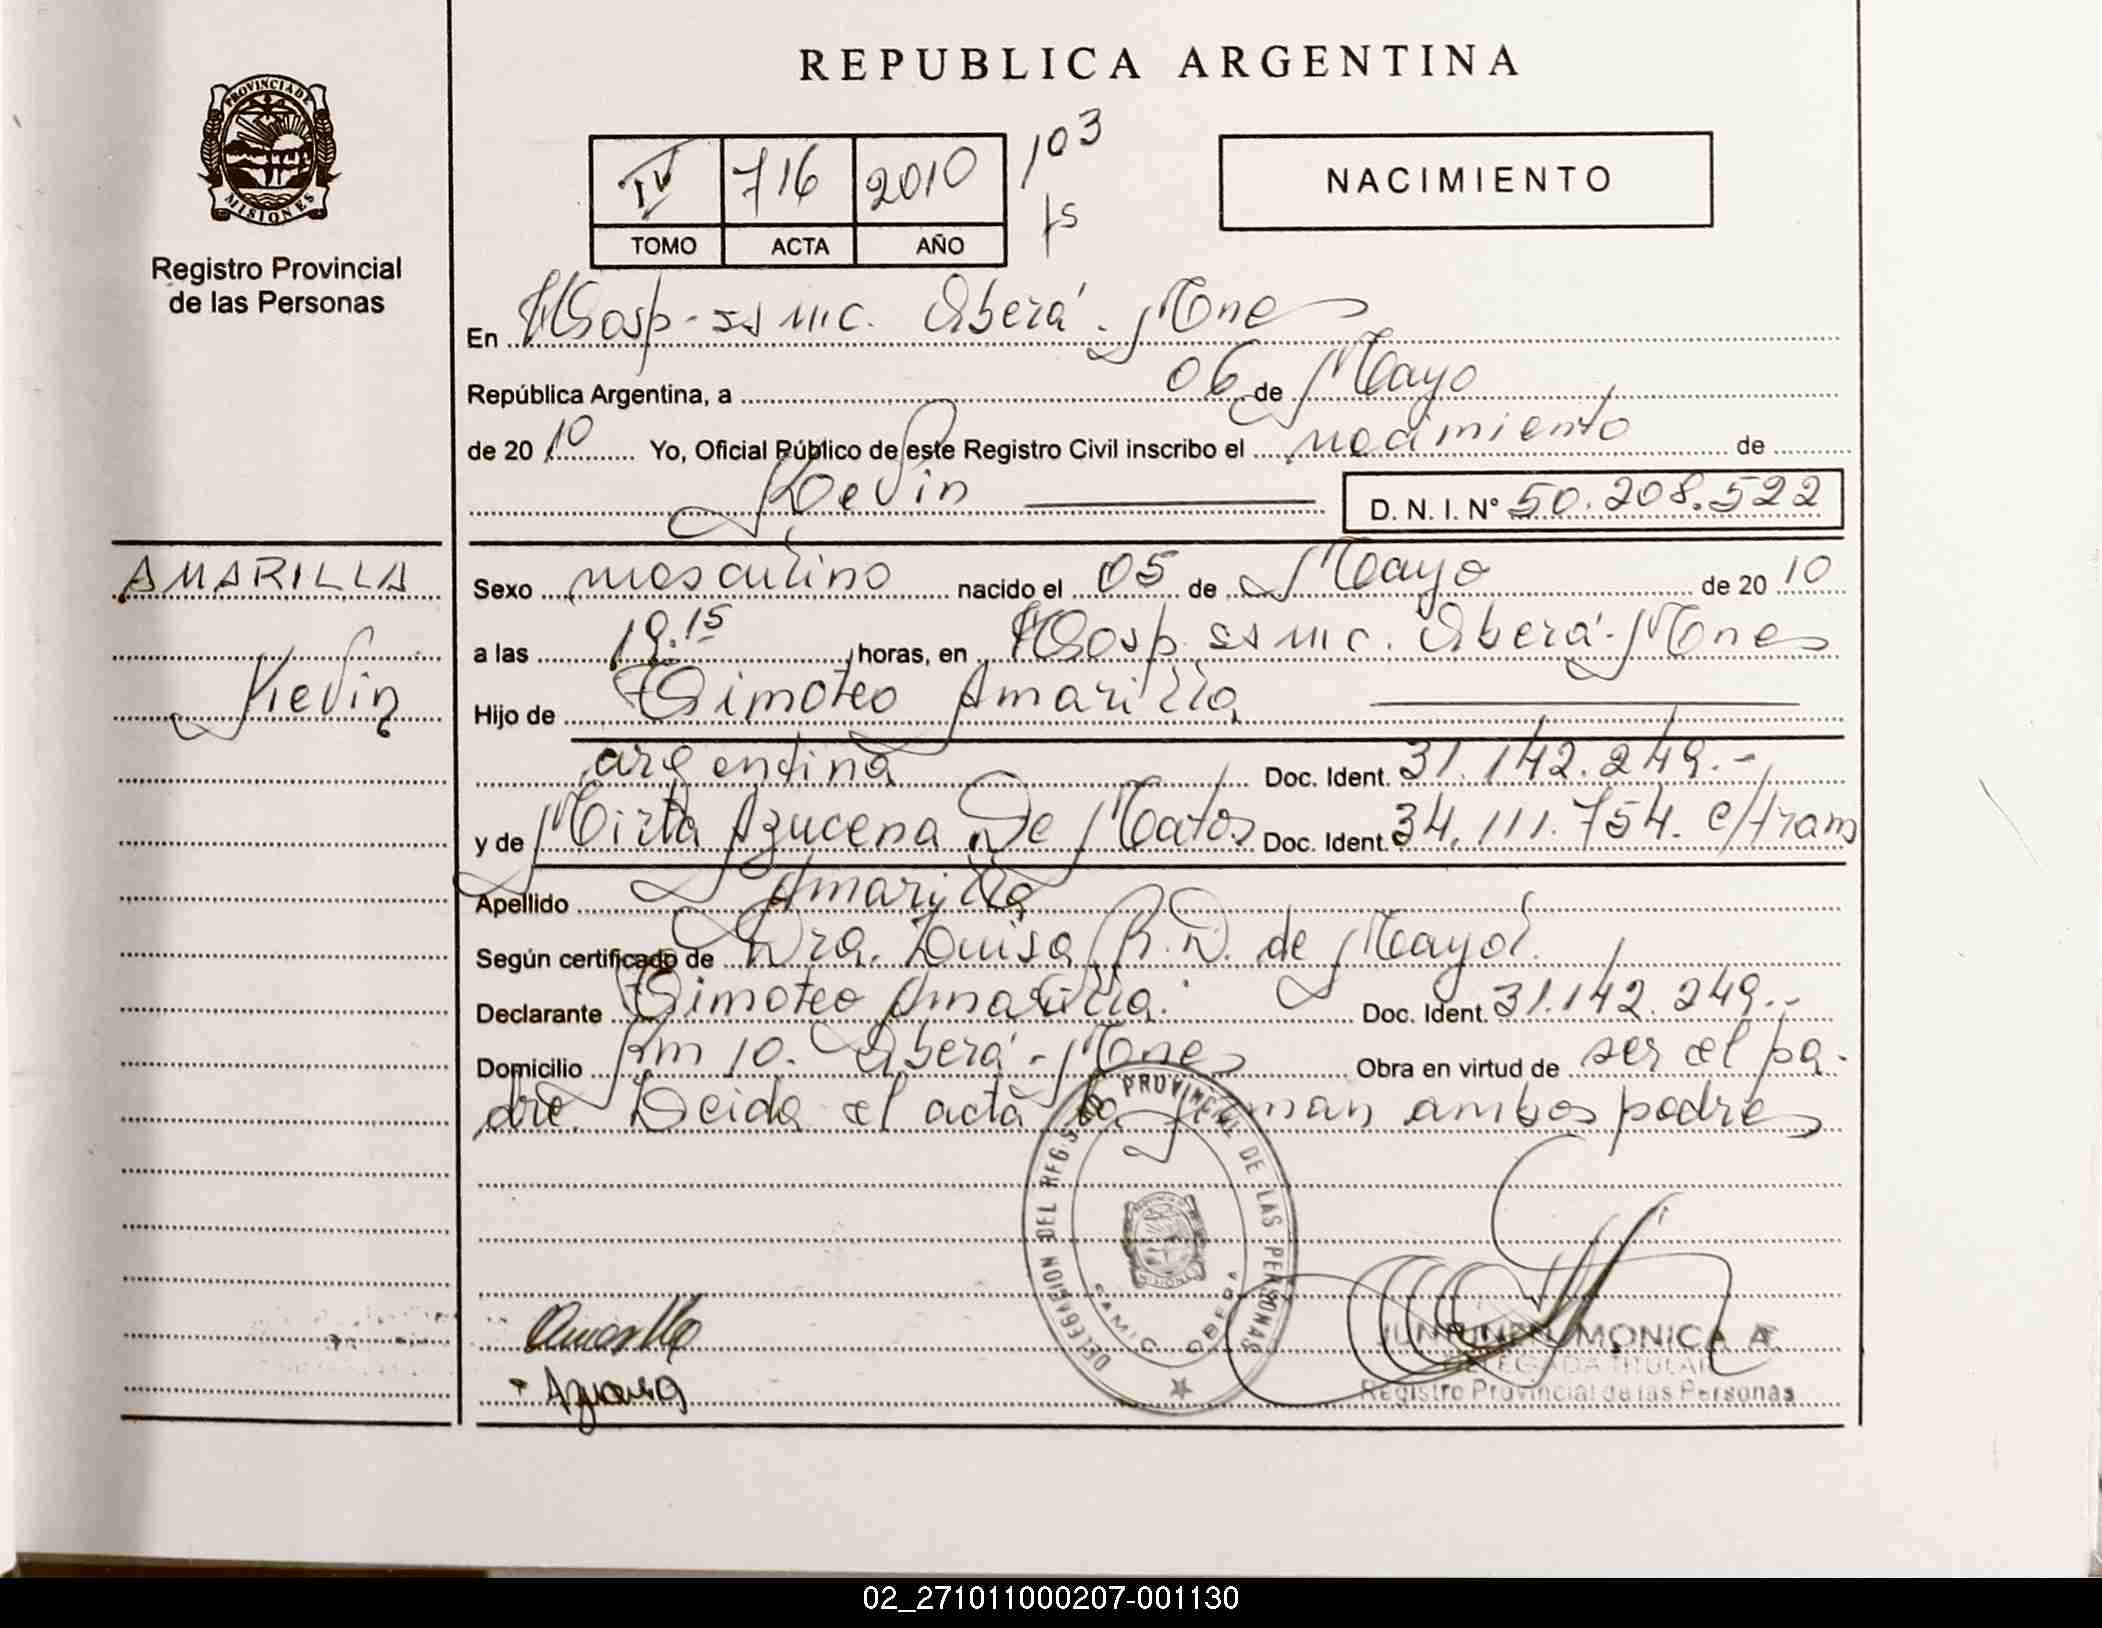 REPUBLICA ARGENTINA
PROVINCIA DE
MISIONES
Registro Provincial
de las Personas
IV 716 2010 103
TOMO ACTA AÑO fs
NACIMIENTO
En Hosp. SSMC. Oberá - Mnes
República Argentina, a 06 de Mayo
de 20 10 Yo, Oficial Público de este Registro Civil inscribo el nacimiento de
Kevin D. N. I. Nº 50.208.522
AMARILLA
Kevin
Sexo masculino nacido el 05 de Mayo de 20 10
a las 19.15 horas, en Hosp. SSMC. Oberá - Mnes
Hijo de Timoteo Amarilla
argentina Doc. Ident. 31.142.249.-
y de Mirta Azucena De Matos Doc. Ident. 34.111.754. c/tram
Apellido Amarilla
Según certificado de Dra. Luisa R.D. de Mayol.
Declarante Timoteo Amarilla. Doc. Ident. 31.142.249.-
Domicilio Km 10. Oberá - Mnes Obra en virtud de ser el pa-
dre. Leida el acta la firman ambos padres
DELEGACION DEL REGISTRO PROVINCIAL DE LAS PERSONAS
MISIONES
SAMIC OBERA
Amarilla
MONICA A.
DELEGADA TITULAR
Registro Provincial de las Personas
02_271011000207-001130